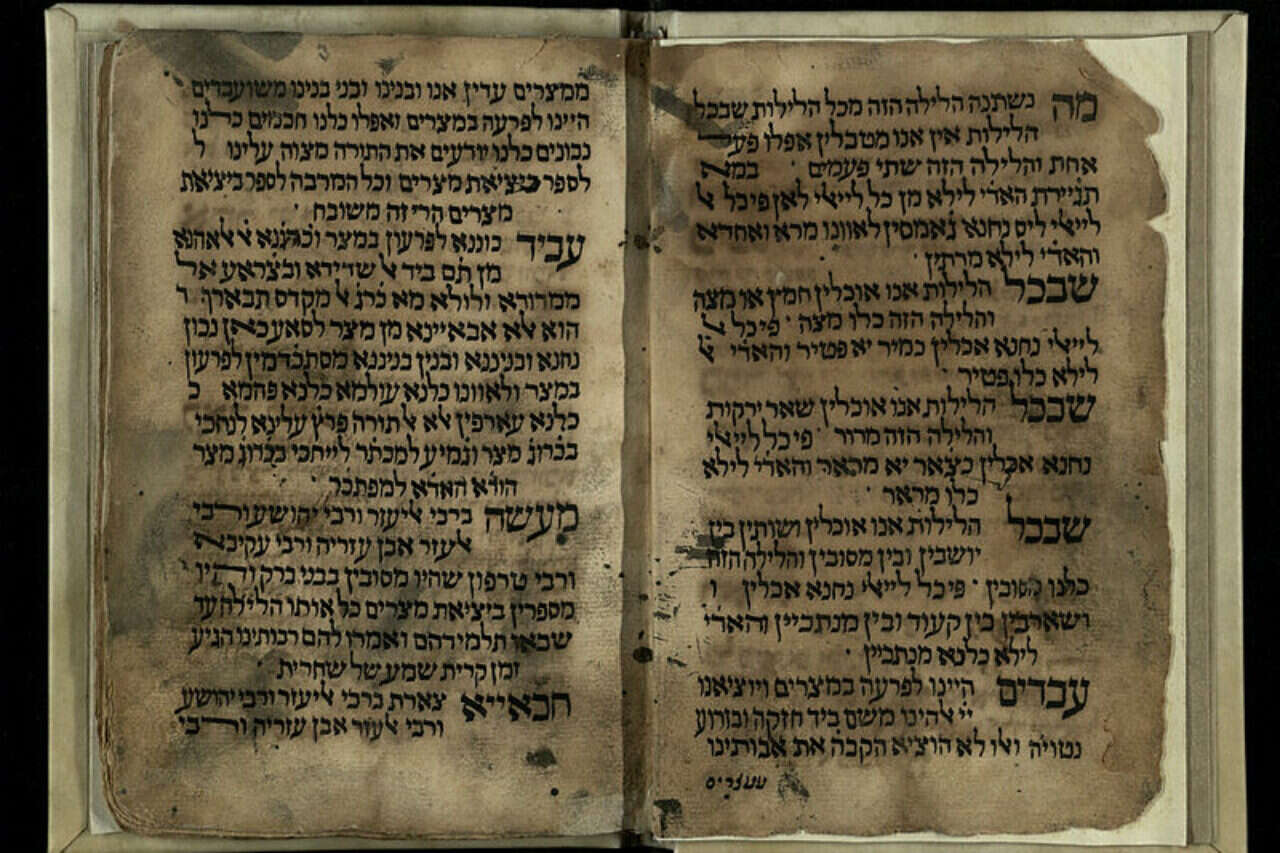 מה נשתנה הלילה הזה מכל הלילות שבכל
הלילות אין אנו מטבלין אפלו פע
אחת והלילה הזה שתי פעמים · במא
תגיירת האדי לילא מן כל לייאלי לאן פיכל
לייאלי ליס נחנא גאמסין לאוונו מרא ואחדא
והאדי לילא מרתין ·
שבכל הלילות אנו אוכלין חמץ או מצה
והלילה הזה כלו מצה · פיכל
לייאלי נחנא אכלין כמיר יא פטיר והאדי
לילא כלו פטיר ·
שבכל הלילות אנו אוכלין שאר ירקות
והלילה הזה מרור · פיכל לייאלי
נחנא אכלין כצאר יא מראר והאדי לילא
כלו מראר ·
שבכל הלילות אנו אוכלין ושותין בין
יושבין ובין מסובין והלילה הזה
כלנו מסובין · פיכל לייאלי נחנא אכלין ו
ושארבין בין קעוד ובין מנתכיין והאדי
לילא כלנא מנתכיין ·
עבדים היינו לפרעה במצרים ויוציאנו
ייי אלהינו משם ביד חזקה ובזרוע
נטויה ואלו לא הוציא הקבה את אבותינו
ממצרים עדין אנו ובנינו ובני בנינו משועבדים
היינו לפרעה במצרים ואפלו כלנו חכמים כלנו
נבונים כלנו יודעים את התורה מצוה עלינו ל
לספר ביציאת מצרים וכל המרבה לספר ביציאת
מצרים הרי זה משובח ·
עביד כוננא לפרעון במצר וכרגנא אללאהנא
מן תם ביד אלשדידא ובצראע אל
ממרודא ולולא מא כרג אלמקדס תבארך ו
הוא לא אבאיינא מן מצר לסאע כאן נכון
נחנא ובניננא ובנין בניננא מסתכדמין לפרעון
במצר ולאוונו כלנא עולמא כלנא פהמא כ
כלנא עארפין אלא אלתורה פרץ עלינא לנחכי
בכרוג מצר וגמיע למכתר לייחכי בכרוג מצר
הווא האדא למפתכר ·
מעשה ברבי אליעזר ורבי יהושע ורבי
אלעזר אבן עזריה ורבי עקיבא
ורבי טרפון שהיו מסובין בבני ברק והיו
מספרין ביציאת מצרים כל אותו הלילה עד
שבאו תלמידהם ואמרו להם רבותינו הגיע
זמן קרית שמע של שחרית ·
חכאייא צארת ברבי אליעזר ורבי יהושע
ורבי אלעזר אבן עזריה ורבי